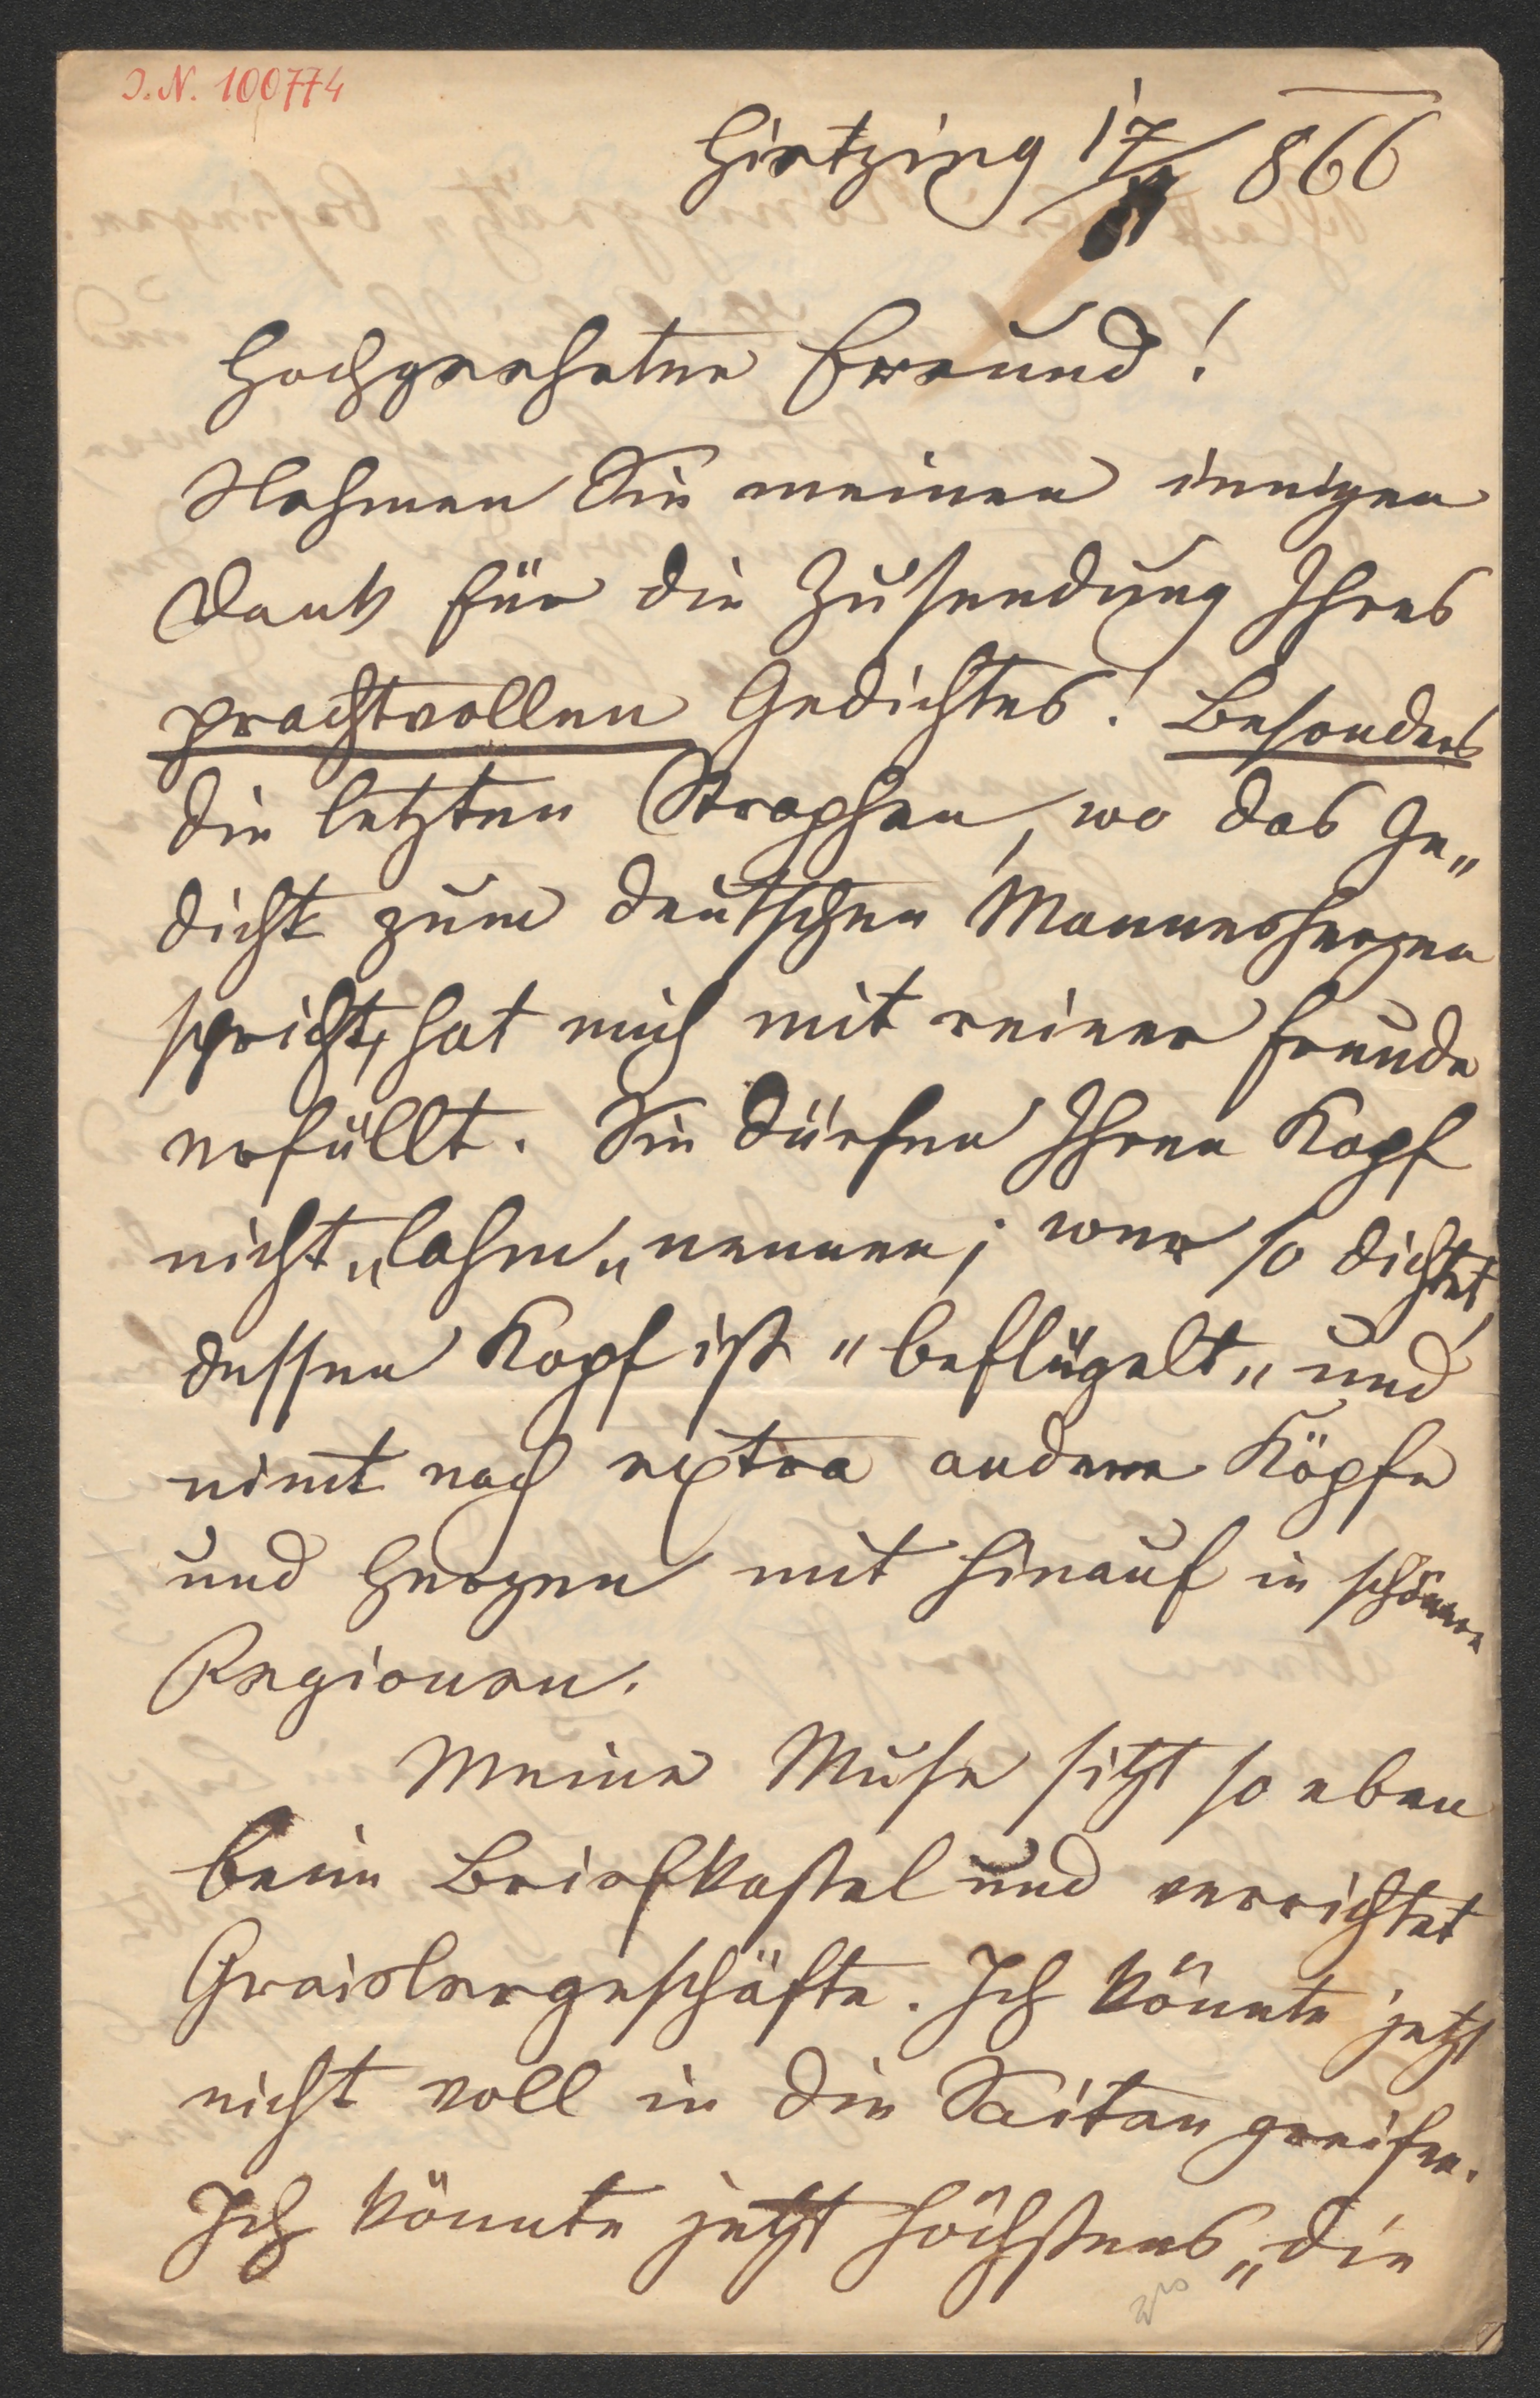 I.N. 100774
Hietzing 17/ 866
Hochgeehrter Freund!
Nehmen Sie meinen innigen
Dank für die Zusendung Ihres
prachtvollen Gedichtes! Besonders
die letzten Strophen, wo das Ge„
dicht zum deutschen Mannesherzen
spricht, hat mich mit reiner Freude
erfüllt. Sie dürfen Ihren Kopf
nicht „lahm„ nennen; wer so dichtet,
dessen Kopf ist "beflügelt„ und
nimt noch extra andere Köpfe
und Herzen mit hinauf in schönere
Regionen.
Meine Muse sitzt so eben
beim Briefkastel und verrichtet
Graislergeschäfte. Ich könnte jetzt
nicht voll in die Saiten greifen.
Ich könnte jetzt höchstens „die